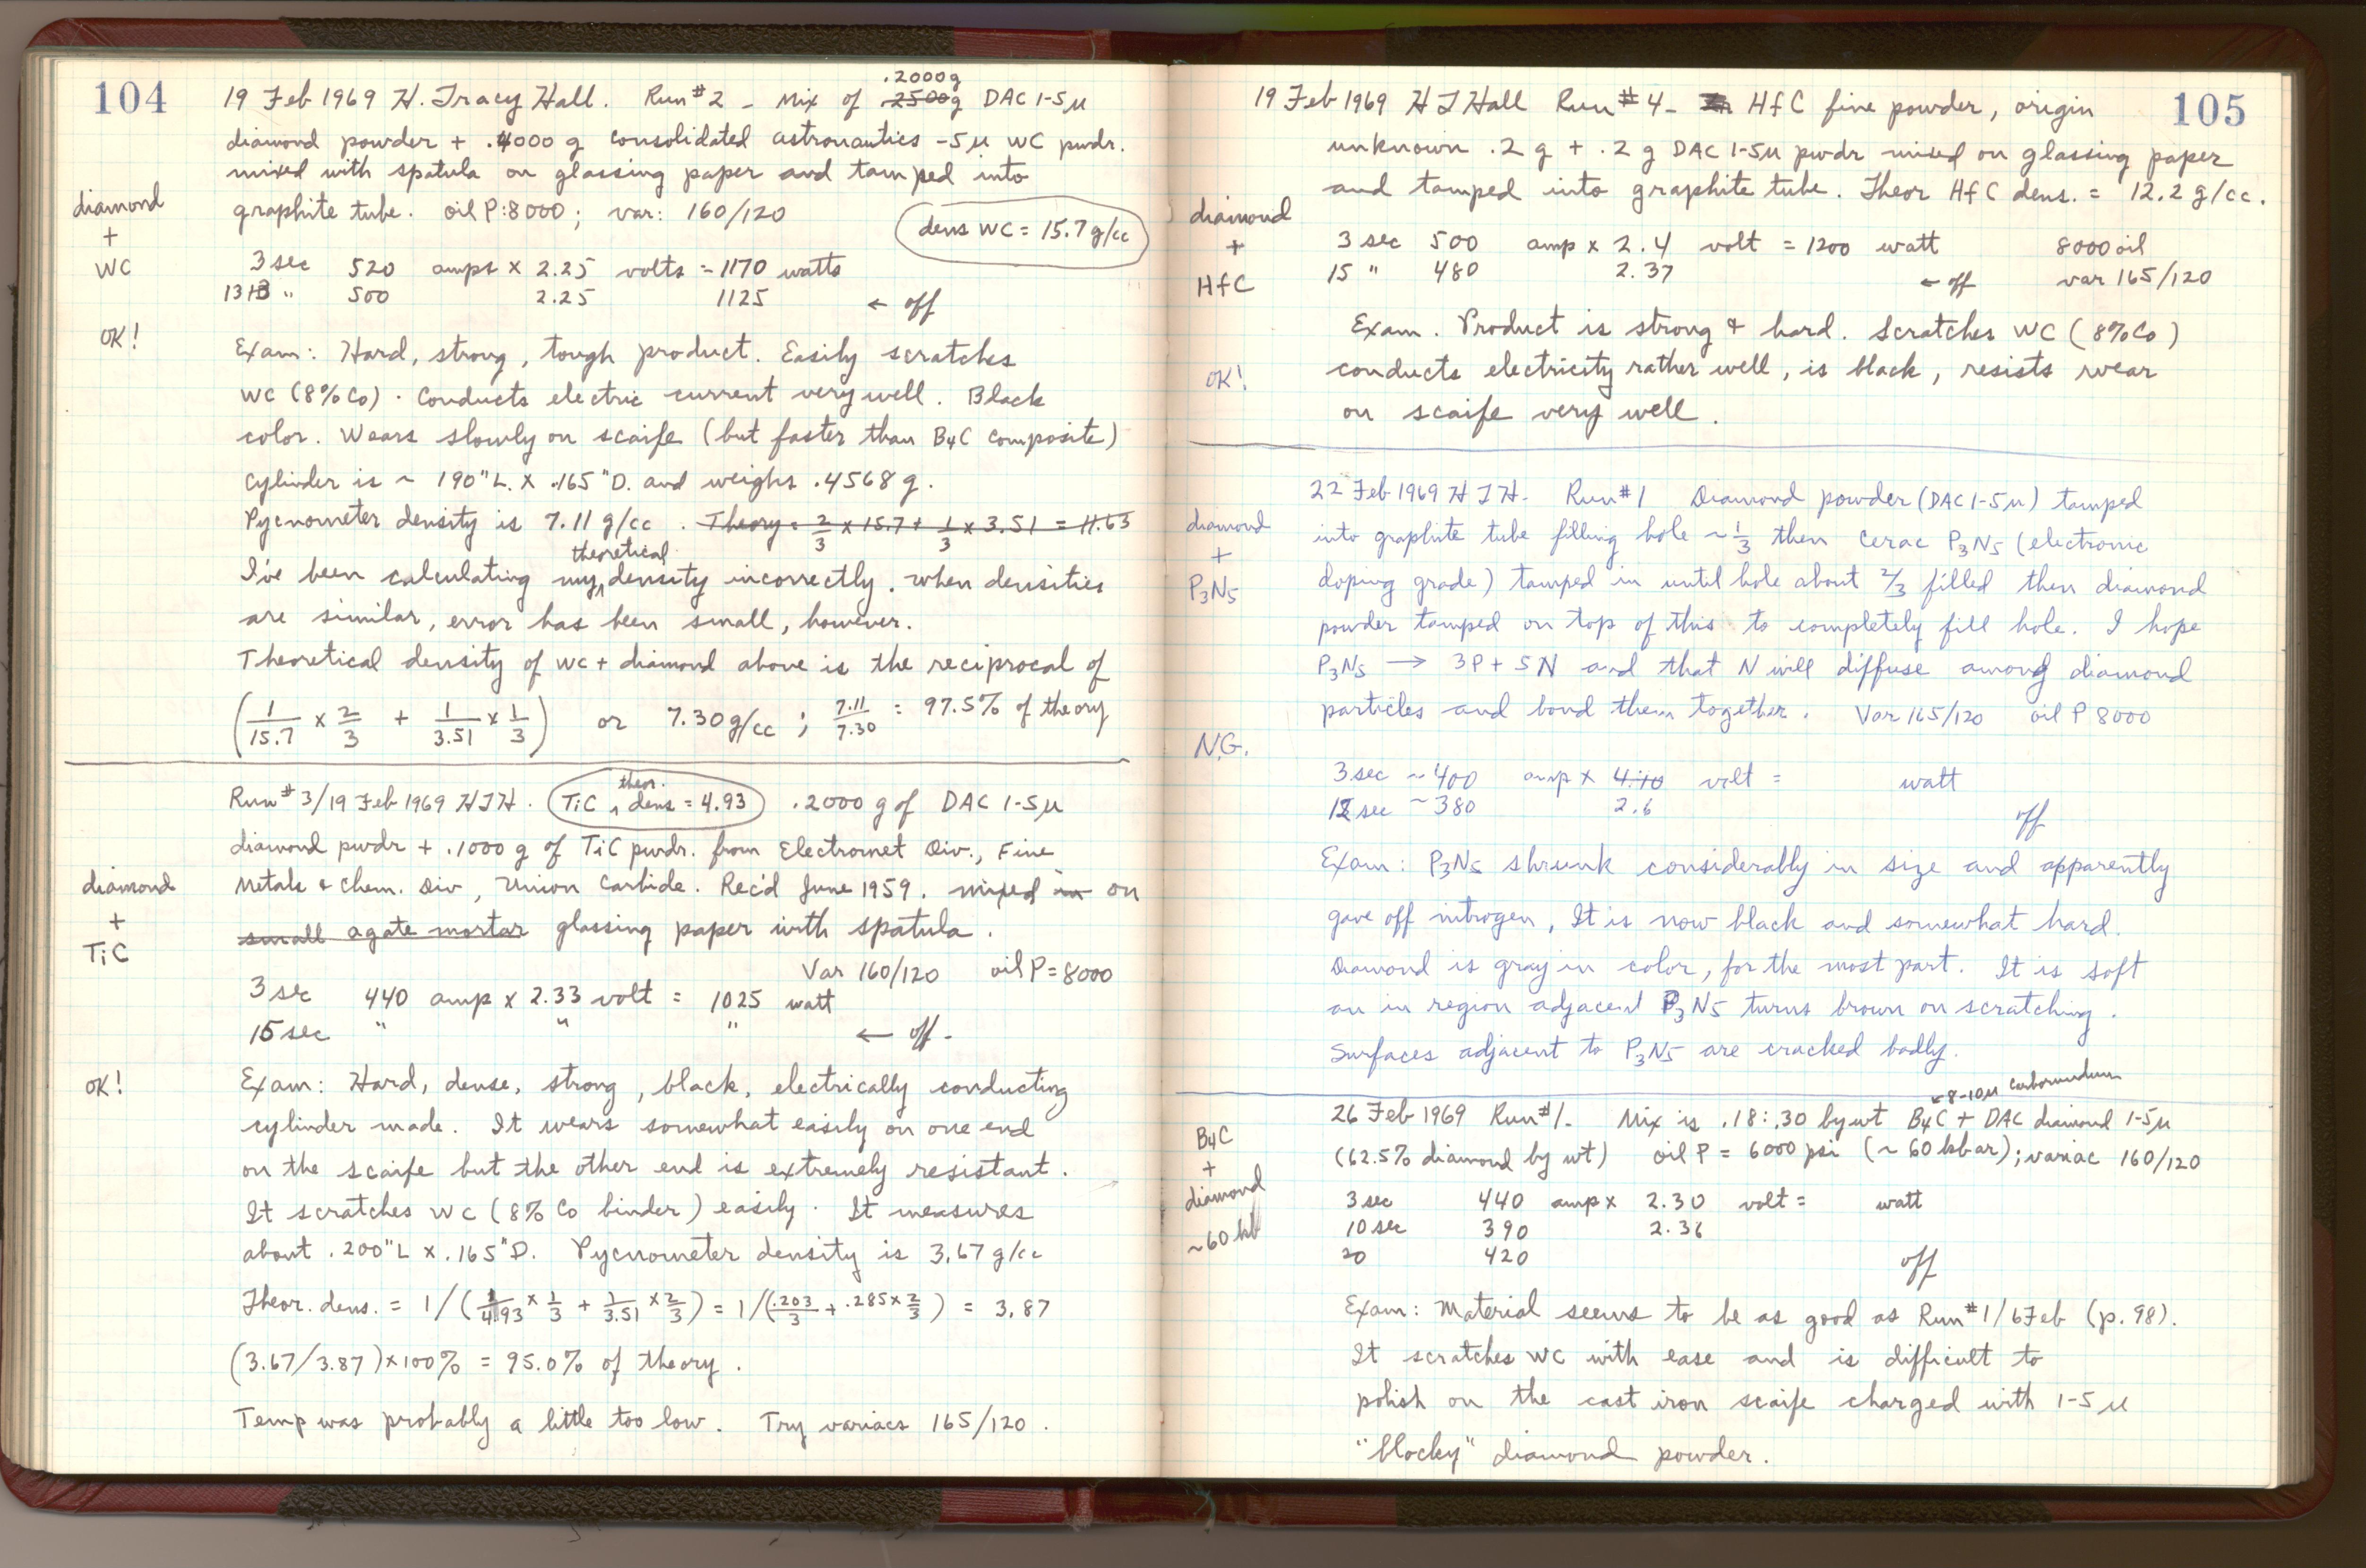 104
19 Feb 1969 H. Tracy Hall. Run #2 - Mix of .2500g .2000g DAC 1-5µ
diamond powder + .4000 g consolidated astronautics -5µ WC pwdr.
mixed with spatula on glassing paper and tamped into
graphite tube. oil P:8000; var: 160/120
dens WC = 15.7 g/cc
diamond
+
WC
3 sec 520 amps x 2.25 volts = 1170 watts
13 " 500 2.25 1125 ← off
OK!
Exam: Hard, strong, tough product. Easily scratches
WC (8% Co). Conducts electric current very well. Black
color. Wears slowly on scaife (but faster than B4C composite)
Cylinder is ~ 190" L. x .165" D. and weighs .4568 g.
Pycnometer density is 7.11 g/cc. Theory = 2/3 x 15.7 + 1/3 x 3.51 = 11.63
I've been calculating my theoretical density incorrectly. When densities
are similar, error has been small, however.
Theoretical density of WC + diamond above is the reciprocal of
(1/15.7 x 2/3 + 1/3.51 x 1/3) or 7.30 g/cc ; 7.11/7.30 = 97.5% of theory
Run #3/19 Feb 1969 HTH. TiC theor. dens = 4.93 .2000 g of DAC 1-5µ
diamond pwdr + .1000 g of TiC pwdr. from Electromet Div., Fine
Metals & Chem. Div, Union Carbide. Rec'd June 1959. mixed in on
small agate mortar glassing paper with spatula.
diamond
+
TiC
Var 160/120 oil P = 8000
3 sec 440 amp x 2.33 volt = 1025 watt
15 sec " " " ← off -
OK!
Exam: Hard, dense, strong, black, electrically conducting
cylinder made. It wears somewhat easily on one end
on the scaife but the other end is extremely resistant.
It scratches WC (8% Co binder) easily. It measures
about .200" L x .165" D. Pycnometer density is 3.67 g/cc
Theor. dens. = 1/(1/4.93 x 1/3 + 1/3.51 x 2/3) = 1/(.203/3 + .285 x 2/3) = 3.87
(3.67/3.87) x 100% = 95.0% of theory.
Temp was probably a little too low. Try variacs 165/120.
105
19 Feb 1969 H T Hall Run #4 - HfC fine powder, origin
unknown .2 g + .2 g DAC 1-5µ pwdr mixed on glassing paper
and tamped into graphite tube. Theor HfC dens. = 12.2 g/cc.
diamond
+
HfC
3 sec 500 amp x 2.4 volt = 1200 watt 8000 oil
15 " 480 2.37 ← off var 165/120
OK!
Exam. Product is strong & hard. Scratches WC (8% Co)
conducts electricity rather well, is black, resists wear
on scaife very well.
22 Feb 1969 H T H. Run #1 Diamond powder (DAC 1-5µ) tamped
into graphite tube filling hole ~ 1/3 then Cerac P3N5 (electronic
doping grade) tamped in until hole about 2/3 filled then diamond
powder tamped on top of this to completely fill hole. I hope
P3N5 → 3P + 5N and that N will diffuse among diamond
particles and bond them together. Var 165/120 oil P 8000
diamond
+
P3N5
N.G.
3 sec ~400 amp x 4.10 volt = watt
12 sec ~380 2.6 off
Exam: P3N5 shrunk considerably in size and apparently
gave off nitrogen, It is now black and somewhat hard.
Diamond is gray in color, for the most part. It is soft
an in region adjacent P3N5 turns brown on scratching.
Surfaces adjacent to P3N5 are cracked badly.
8-10µ Carborundum
26 Feb 1969 Run #1. Mix is .18:.30 by wt B4C + DAC diamond 1-5µ
(62.5% diamond by wt) oil P = 6000 psi (~ 60 kbar); variac 160/120
B4C
+
diamond
~60 kb
3 sec 440 amp x 2.30 volt = watt
10 sec 390 2.36
20 420 off
Exam: Material seems to be as good as Run #1/6 Feb (p. 98).
It scratches WC with ease and is difficult to
polish on the cast iron scaife charged with 1-5 µ
"blocky" diamond powder.